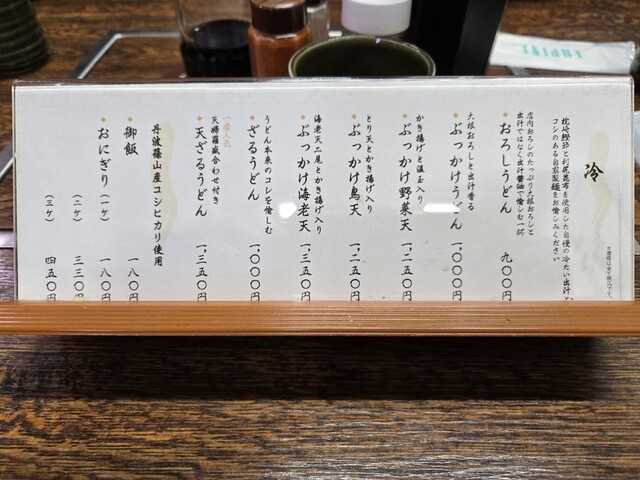 冷
※価格は全て税込です。
枕崎鰹節と利尻昆布を使用した自慢の冷たい出汁と
コシのある自家製麺をお愉しみください
店内おろしのたっぷり大根おろしと
出汁ではなく出汁醤油で愉しむ一杯
おろしうどん 九〇〇円
大根おろしと出汁香る
ぶっかけうどん 一,〇〇〇円
かき揚げと温玉入り
ぶっかけ野菜天 一,二五〇円
とり天とかき揚げ入り
ぶっかけ鳥天 一,二五〇円
海老天二尾とかき揚げ入り
ぶっかけ海老天 一,三五〇円
うどん本来のコシを愉しむ
ざるうどん 一,〇〇〇円
一番人気
天婦羅盛合わせ付き
天ざるうどん 一,三五〇円
丹波篠山産コシヒカリ使用
御飯 一八〇円
おにぎり (一ケ) 一八〇円
(二ケ) 三三〇円
(三ケ) 四五〇円